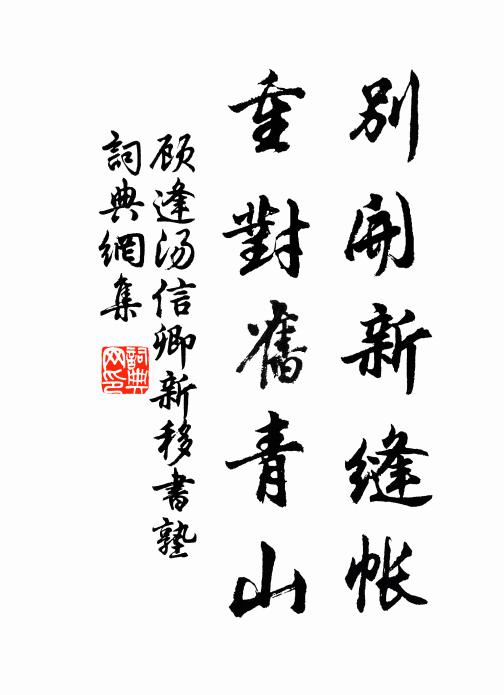 別開新縫帐
重對舊青山
顾逢汤信卿新移書塾
詞典網集
詞典网印